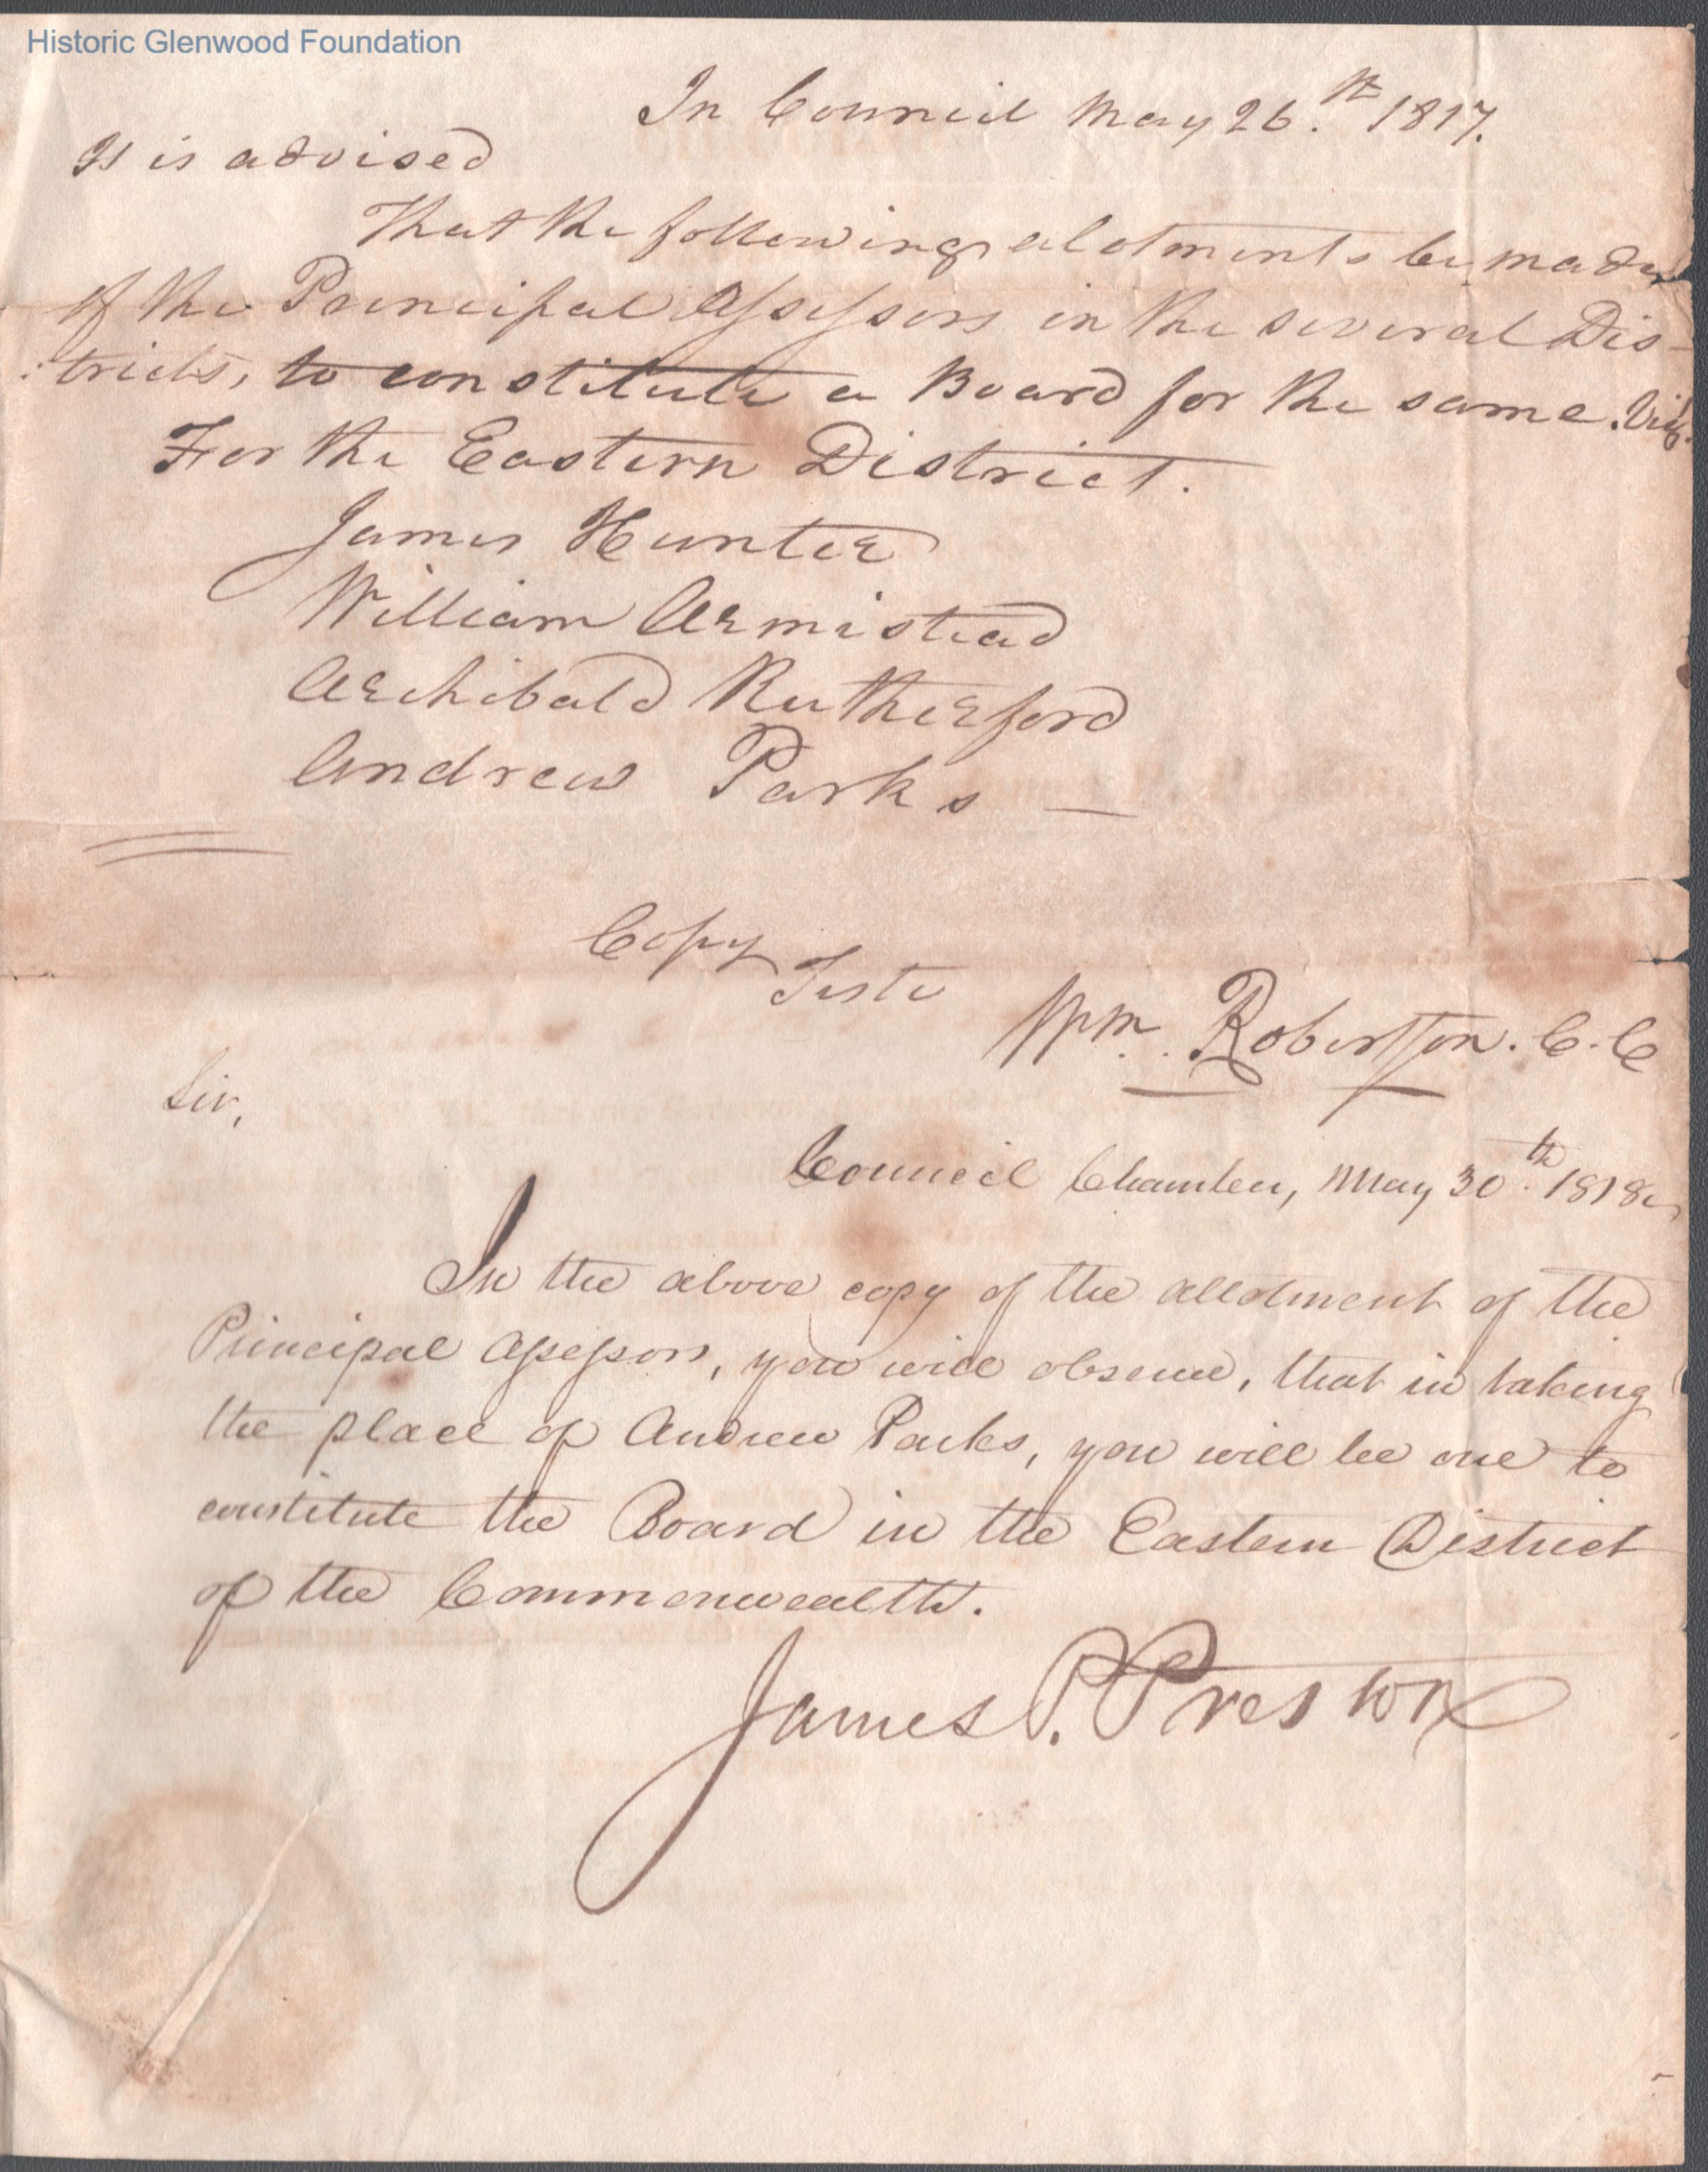 Historic Glenwood Foundation
In Council May 26.th 1817.
It is advised
That the following alotments be made
of the Principal Assessors in the several Dis-
tricts, to constitute a Board for the same. Viz.
For the Eastern District.
James Hunter
William Armistead
Archibald Rutherford
Andrew Parks —
Copy
Teste
Wm. Robertson. C. C
Sir,
Council Chamber, May 30th. 1818.
In the above copy of the allotment of the
Principal Assessors, you will observe, that in taking
the place of Andrew Parks, you will be one to
constitute the Board in the Eastern District
of the Commonwealth.
James P. Preston